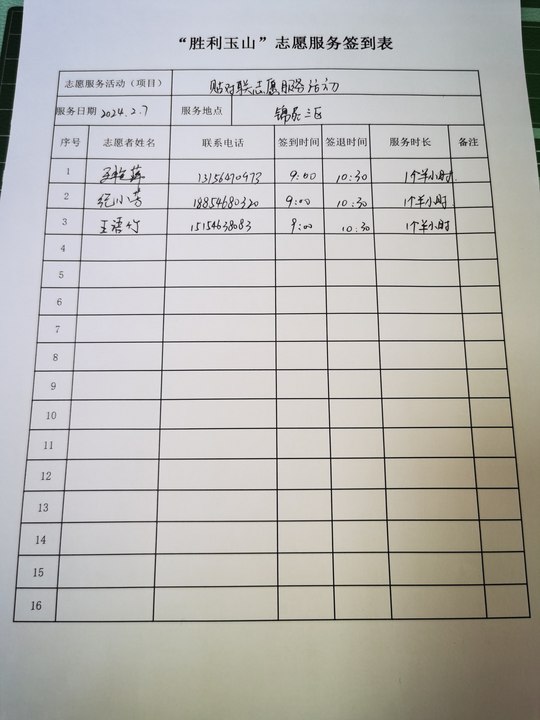 “胜利玉山”志愿服务签到表
志愿服务活动（项目） 贴对联志愿服务活动
服务日期 2024.2.7 服务地点 锦苑三区
序号 志愿者姓名 联系电话 签到时间 签退时间 服务时长 备注
1 13156470973 9:00 10:30 1个半小时
2 纪小芳 18854680320 9:00 10:30 1个半小时
3 王语竹 15154638083 9:00 10:30 1个半小时
4
5
6
7
8
9
10
11
12
13
14
15
16